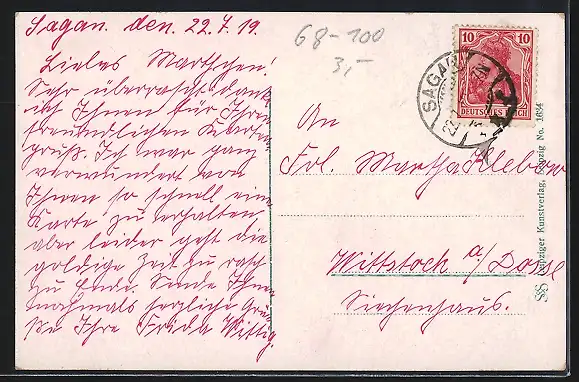 Sagan. den. 22.7.19.
68-100
3,-
Liebes Marthchen!
Sehr überrascht dank
ich Ihnen für Ihren
freundlichen Karten
gruß. Ich war ganz
verwundert von
Ihnen so schnell eine
Karte zu erhalten,
aber leider geht die
goldige Zeit zu rasch
zu Ende. Sende Ihnen
nochmals herzliche Grü-
ße Ihre Frida Wittig.
10 10
DEUTSCHES REICH
SAGAN
An
Frl. Martha Klebow
Wittstock a/Dosse
Siechenhaus.
SS Leipziger Kunstverlag, Leipzig No. 1634